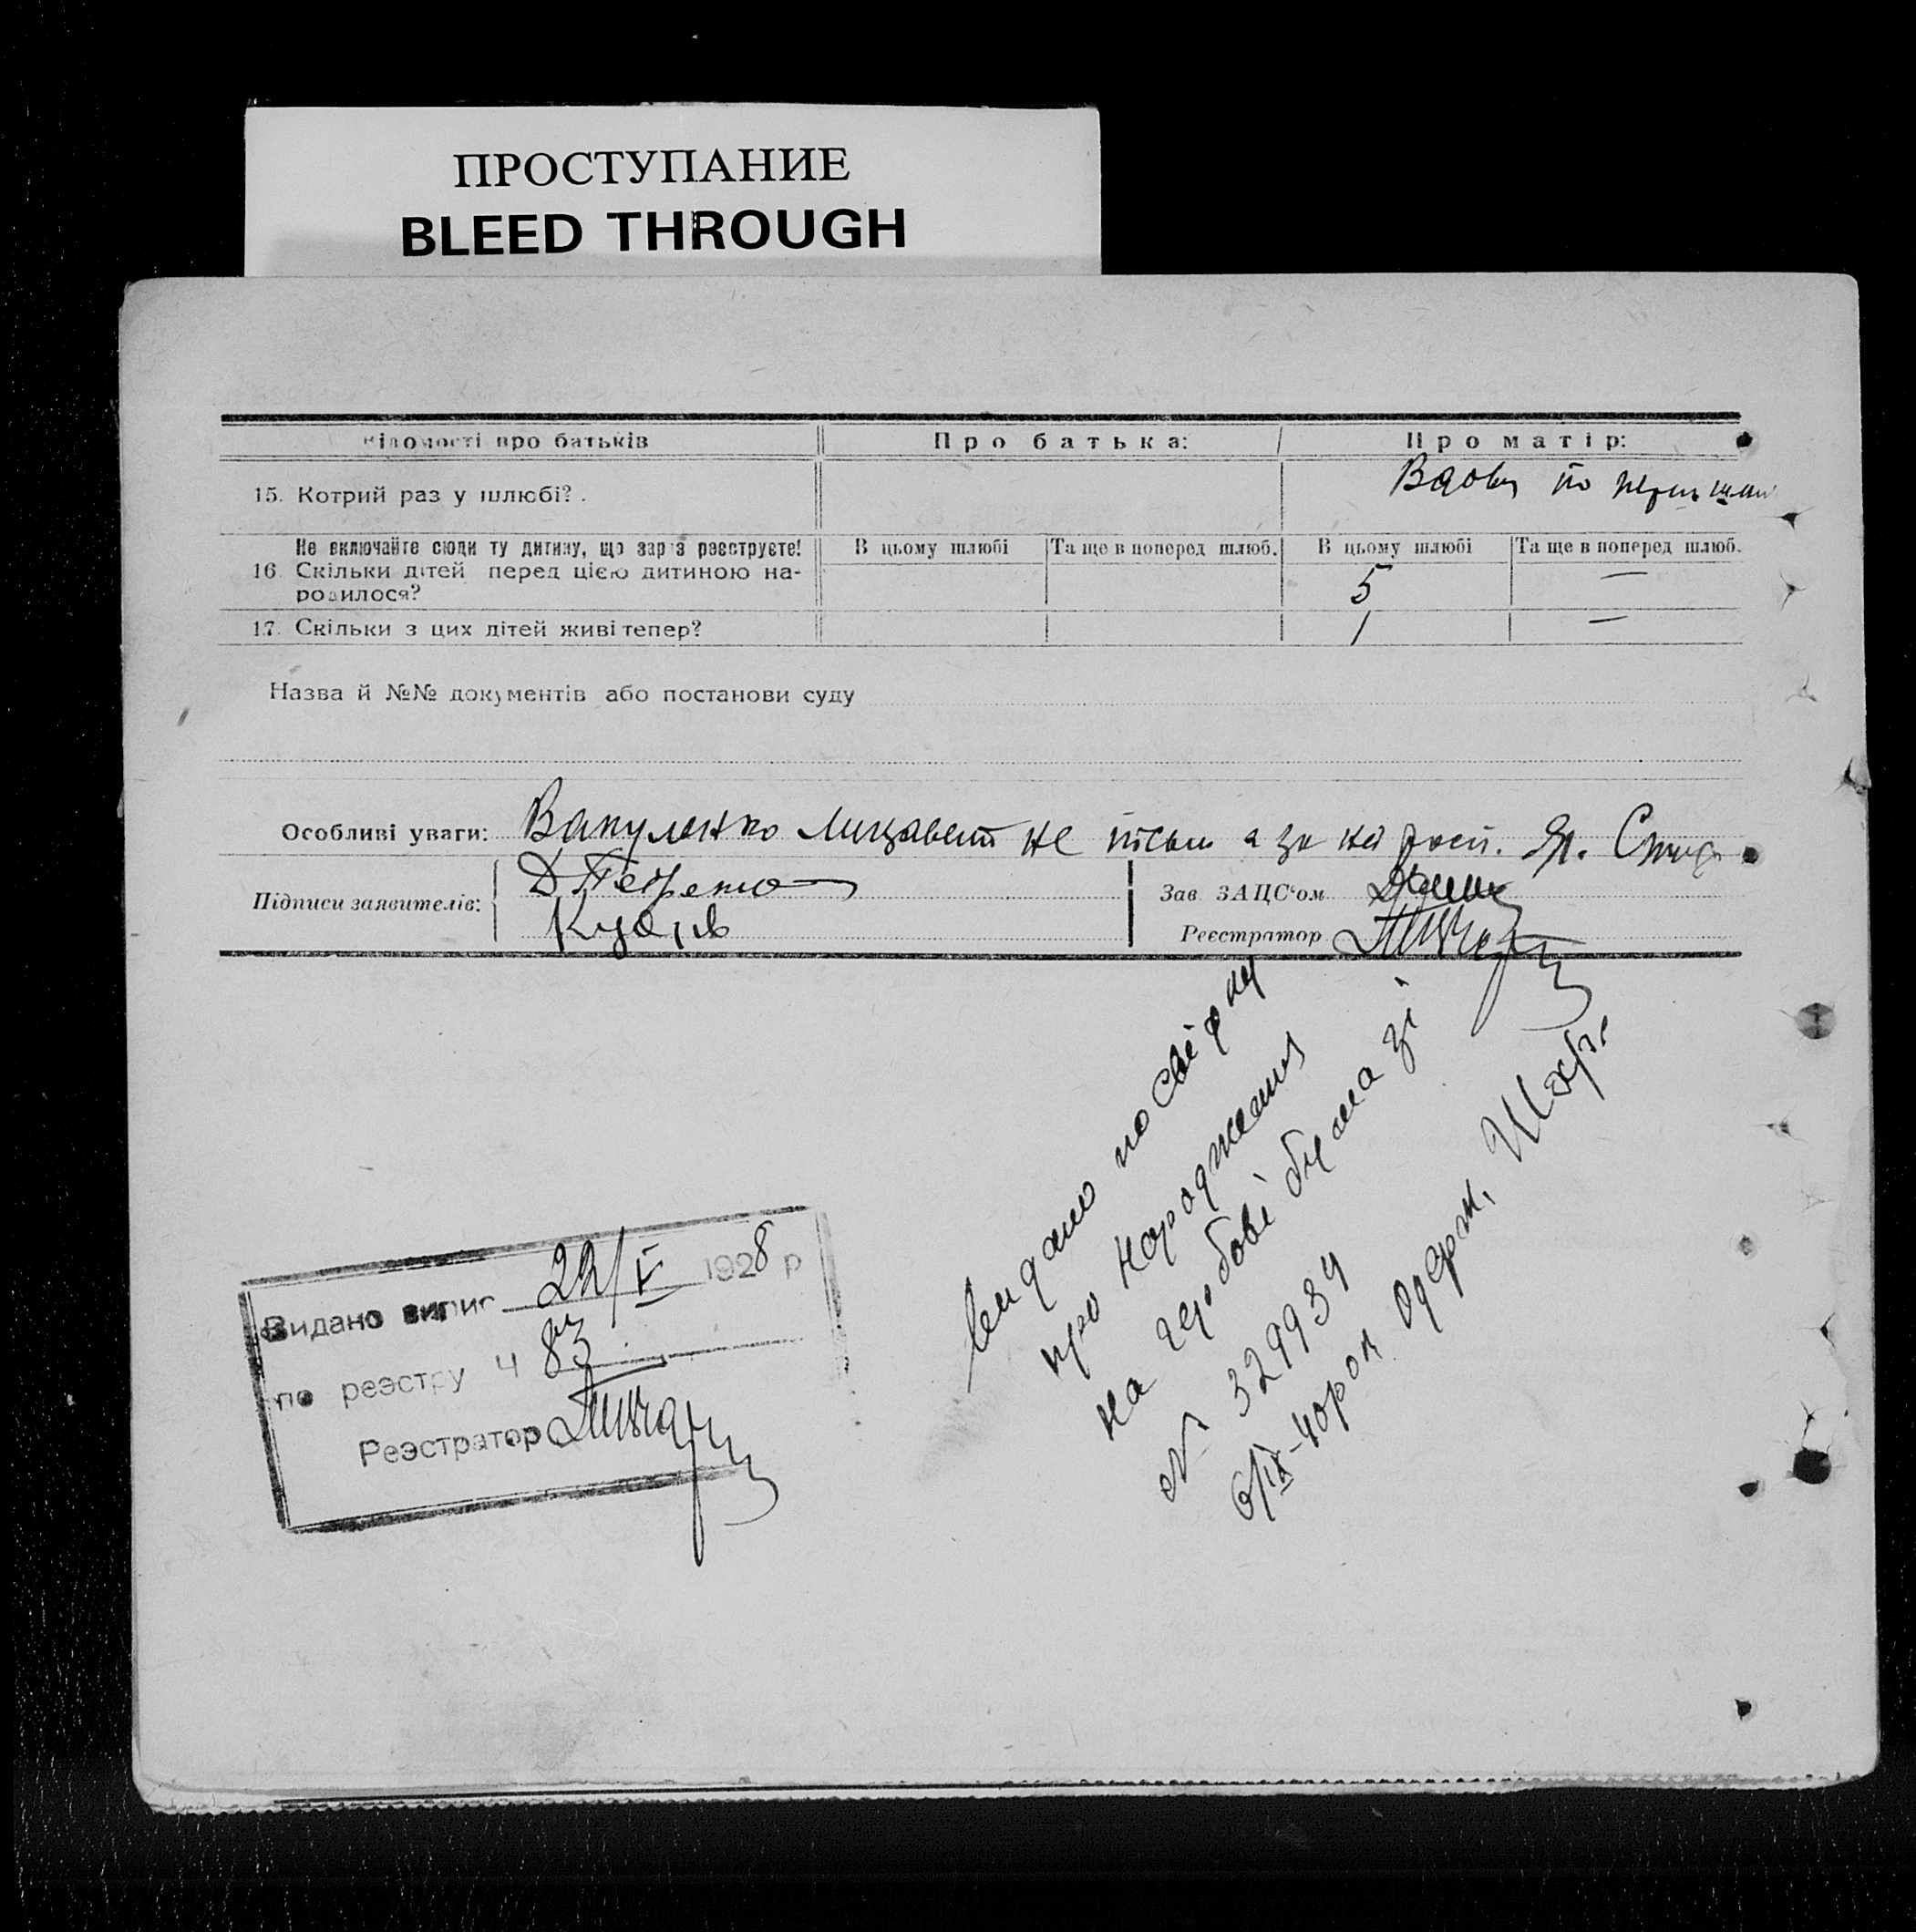 ПРОСТУПАНИЕ
BLEED THROUGH
Відомості про батьків Про батька: Про матір:
15. Котрий раз у шлюбі? . Вдова по
Не включайте сюди ту дитину, що зараз реєструєте! В цьому шлюбі Та ще в поперед шлюб. В цьому шлюбі Та ще в поперед шлюб.
16 Скільки дітей перед цією дитиною на- 5 —
родилося?
17. Скільки з цих дітей живі тепер? 1 —
Назва й №№ документів або постанови суду
Особливі уваги: Вакуленко Лизавет не а за неї
Підписи заявителів: Д. Петренко Зав ЗАЦС‘ом
Реєстратор
видано посвідку
про народження
на гербові бумазі
№ 329934
6/IX-40рок одерж.
Видано випис 22/V 1928 р
по реэстру Ч 83
Реэстратор